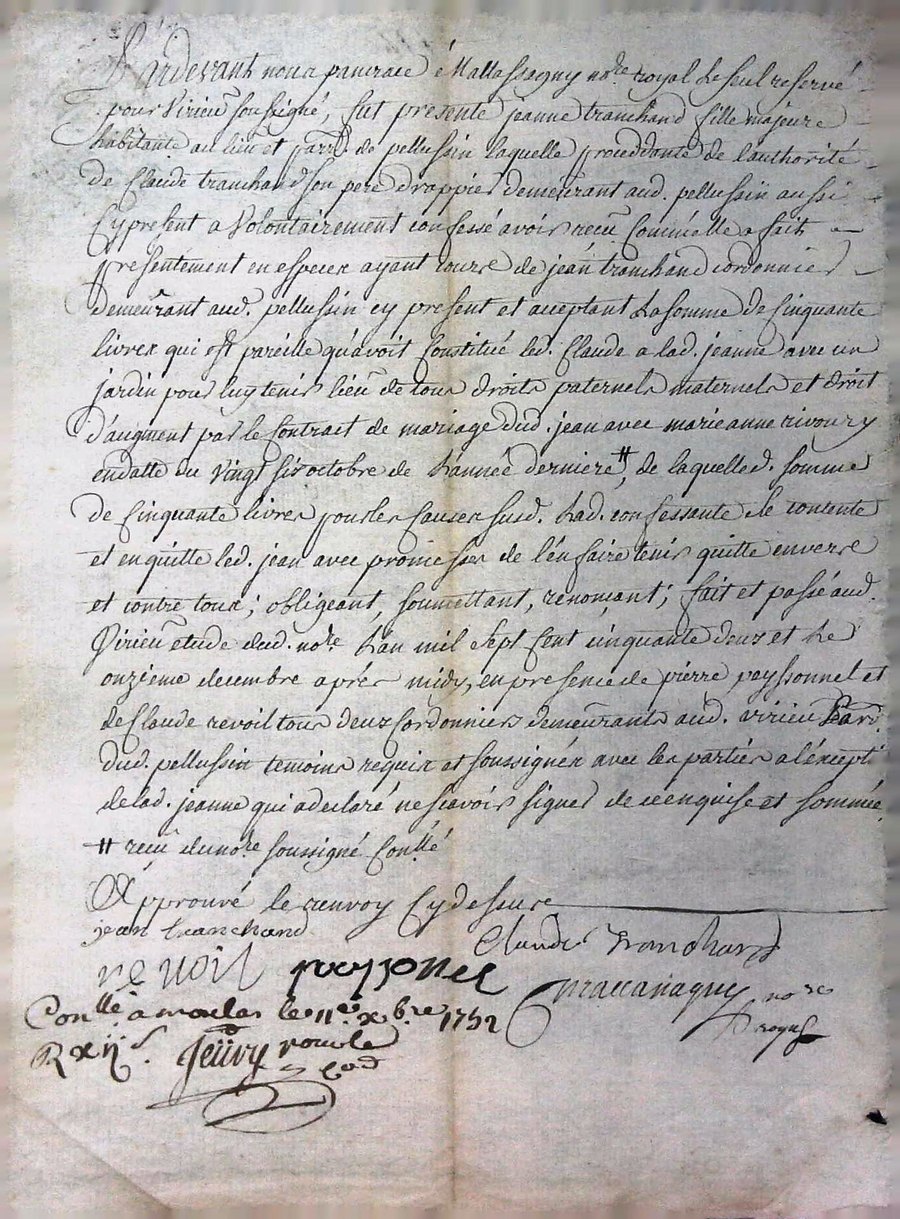 Pardevant nous pancrace é Mattassagny no.re royal le seul reservé
pour Virieu soussigné, fut presente jeanne tranchand fille majeure
habitante au lieu et parr. de pellussin laquelle proceddante de l'authorité
de Claude tranchand son pere drappier demeurant aud. pellussin aussi
Cy present a Volontairement confessé avoir recu Comme elle a fait
presentement en especes ayant cours de jean tranchand cordonnier
demeurant aud. pellussin cy present et aceptant La somme de Cinquante
livres qui est pareille qu'avoit Constitué led. Claude a lad. jeanne avec un
jardin pour luy tenir lieu de tous droits paternels maternels et droit
d'augment par le Contract de mariage dud. jean avec marieanne rivoury
en datte du Vingt six octobre de L'année derniere ⧺, de laquelle d. somme
de Cinquante livres pour les Causes susd. Lad. confessante se contente
et en quitte led. jean avec promesses de l'en faire tenir quitte envers
et contre tous; obligeant, soumettant, renonçant; fait et passé aud.
Virieu etude dud. no.re L'an mil sept Cent cinquante deux et Le
onzieme decembre aprés midy, en presence de pierre peyssonnel et
de Claude revoil tous deux Cordonniers demeurants aud. virieu parr.
dud. pellussin temoins requis et soussignés avec les parties a l'except.
de lad. jeanne qui a declaré ne scavoir signer de ce enquise et sommée
⧺ recu du no.re soussigné Con.llé
Approuvé le renvoy Cy dessus
jean tranchand
Claude Tranchand
revoil peysonel
no.re
royal
Con.llé a le 11.e x.bre 1752